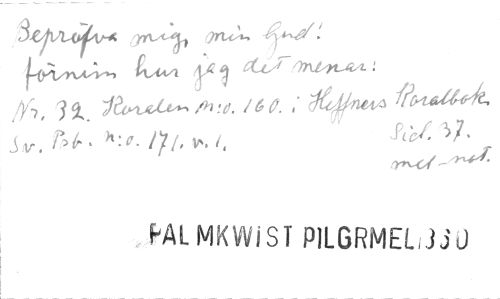 Bepröfva mig, min Gud!
förnim hur jag det menar:
Nr. 32. Koralen N:o. 160. i Hæffners Koralbok.
Sv. Psb. N:o. 171. v. 1.
Sid. 37.
mel-not.
PALMKWIST PILGRMEL/360